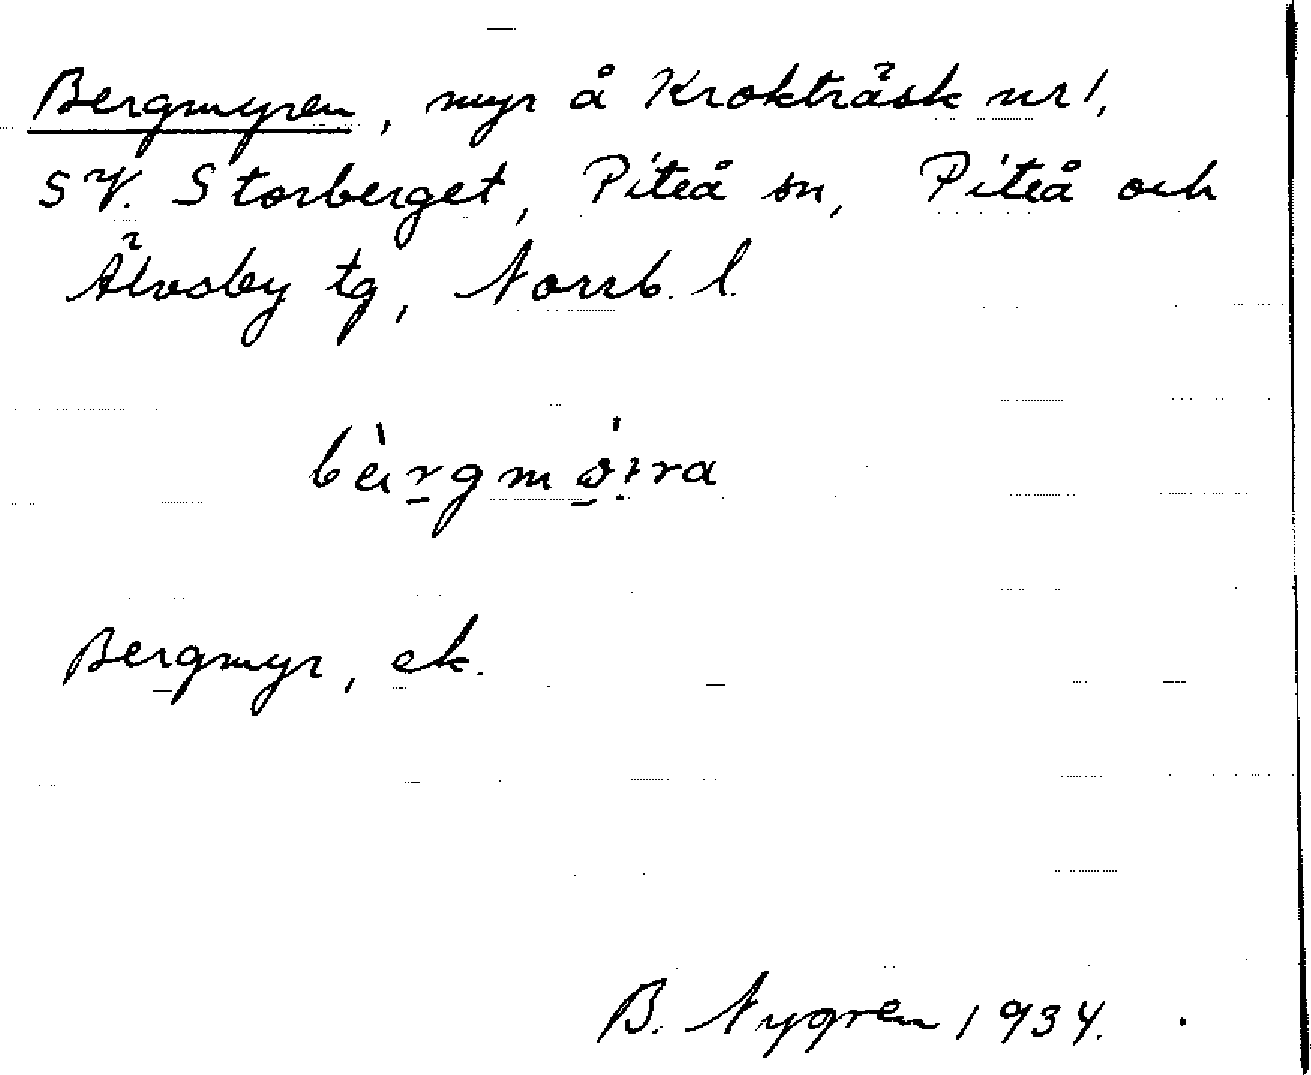 Bergmyren, myr å Krokträsk nr 1,
SV. Storberget, Piteå sn, Piteå och
Älvsby tg, Norrb. l.
Bergmyr, ek.
B. Nygren 1934.